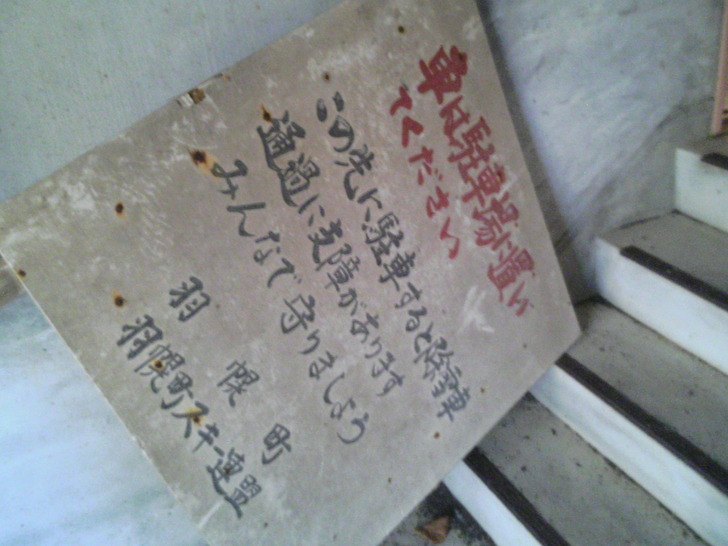 車は駐車場に置い
てください
この先に駐車すると除雪車
通過に支障があります
みんなで守りましょう
羽幌町
羽幌町スキー連盟